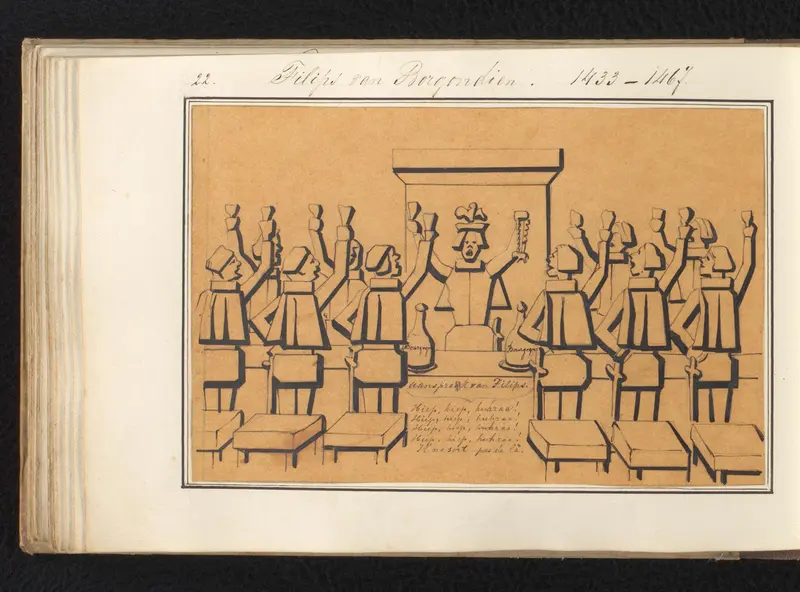 22. Filips van Borgondien. 1433 – 1467.
Bourgogn Bourgogn
Aanspraak van Filips.
Hiep, hiep, huhraa!
Hiep, hiep, huhraa!
Hiep, hiep, huhraa!
Hiep, hiep, huhraa!
K